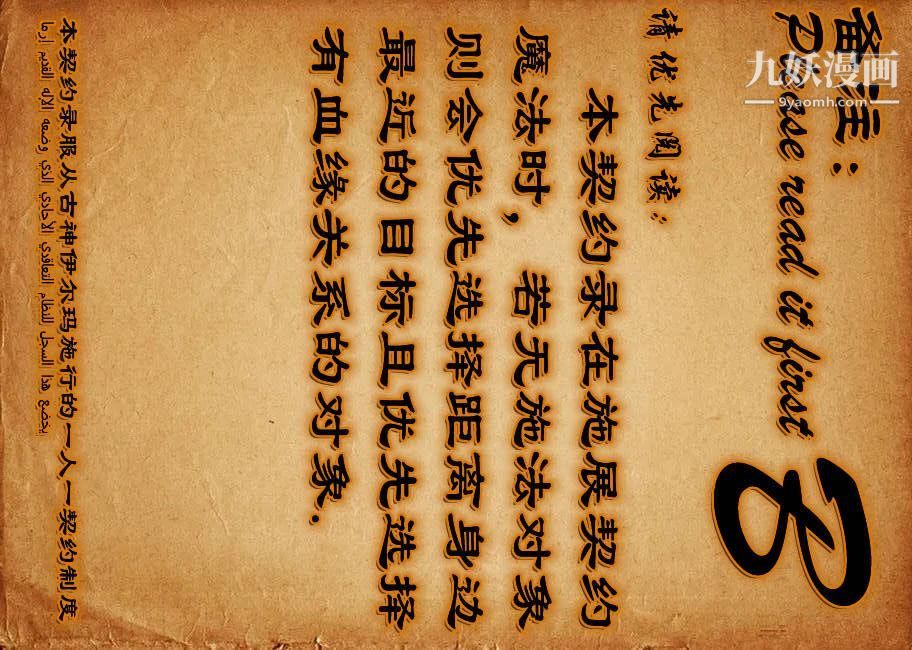 备注：
Please read it first
B
九妖漫画
9yaomh.com
请优先阅读：
本契约录在施展契约
魔法时，若无施法对象
则会优先选择距离身边
最近的目标且优先选择
有血缘关系的对象.
本契约录服从古神伊尔玛施行的一人一契约制度
يخضع هذا السجل للنظام التعاقدي الأحادي الذي وضعه الإله القديم إرما